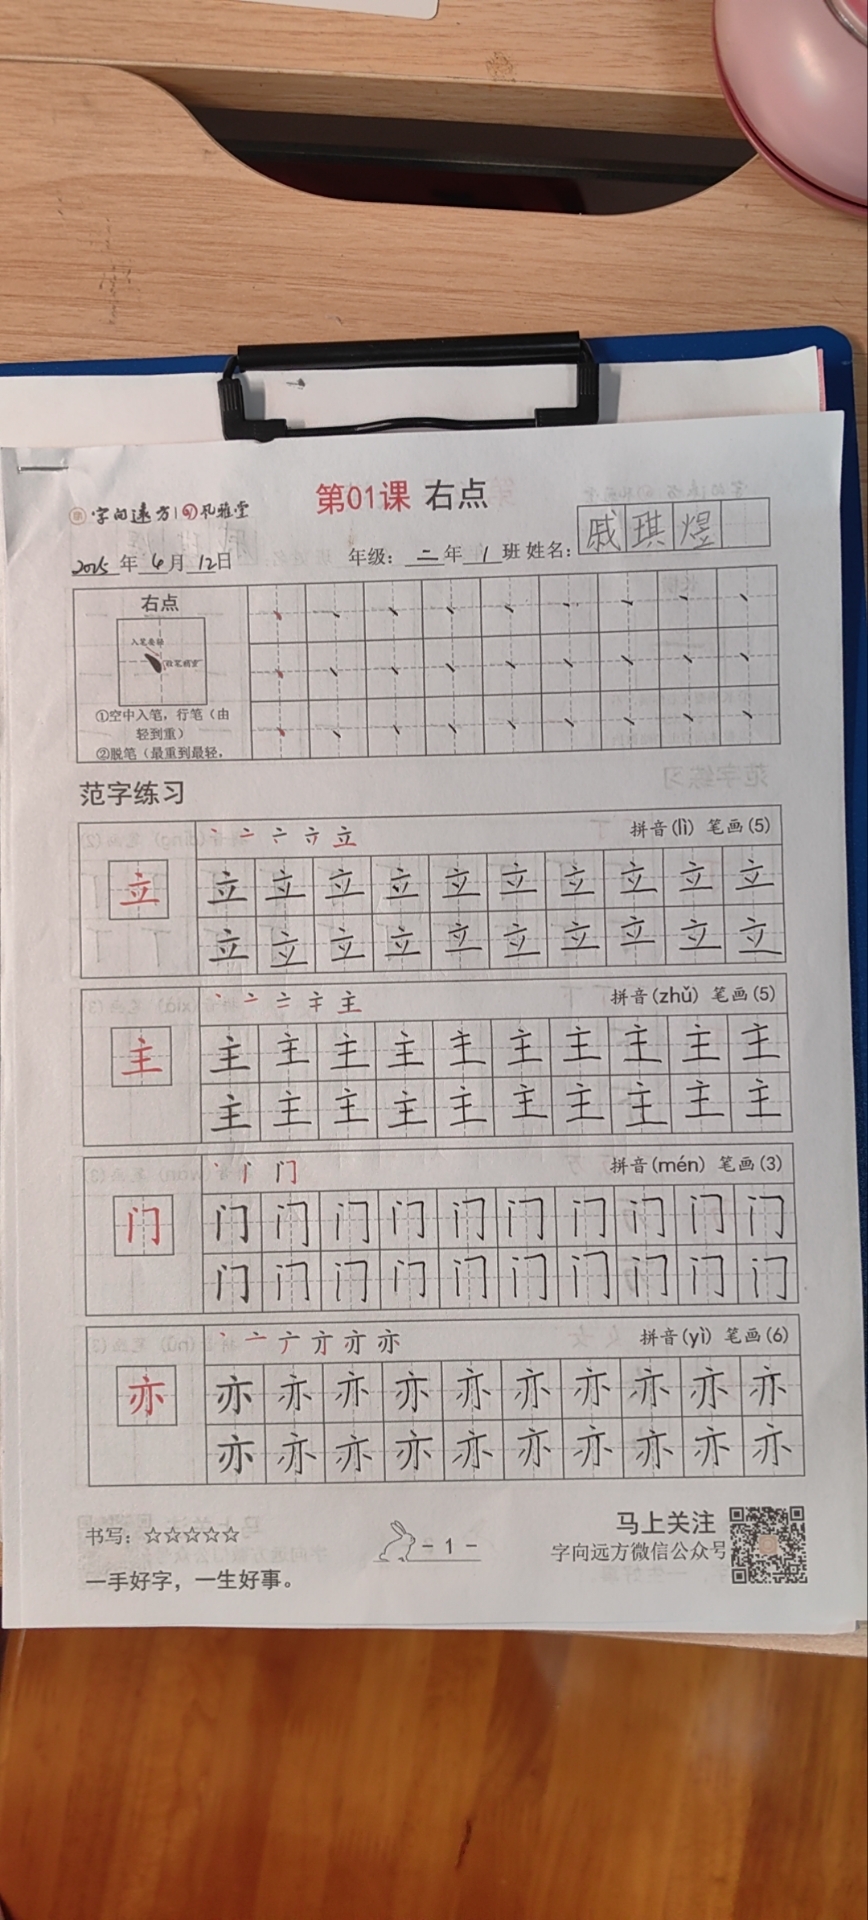 字向远方 风雅堂
第01课 右点
2025年6月12日 年级：二年1班 姓名：戚琪煜
右点
入笔要轻
收笔稍重
①空中入笔，行笔（由
轻到重）
②脱笔（最重到最轻，
范字练习
拼音(lì) 笔画(5)
立 立 立 立 立 立 立 立 立 立 立
立 立 立 立 立 立 立 立 立 立
主 拼音(zhǔ) 笔画(5)
主 主 主 主 主 主 主 主 主 主 主
主 主 主 主 主 主 主 主 主 主
门 拼音(mén) 笔画(3)
门 门 门 门 门 门 门 门 门 门 门
门 门 门 门 门 门 门 门 门 门
亦 拼音(yì) 笔画(6)
亦 亦 亦 亦 亦 亦 亦 亦 亦 亦 亦
亦 亦 亦 亦 亦 亦 亦 亦 亦 亦
书写：☆☆☆☆☆
一手好字，一生好事。
- 1 -
马上关注
字向远方微信公众号